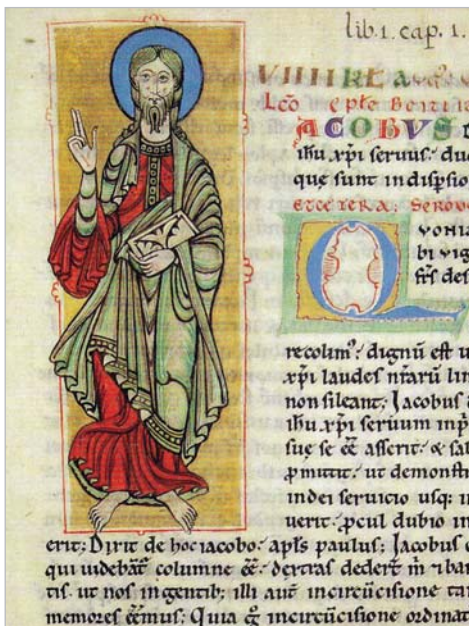 lib. 1. cap. 1.
VIIII KLA
Leo epłe
ACOBVS
ihu xpi seruus. duo
quę sunt in dispsio
et cetera. Sermo
VONIA
bi vig
recolim'. dignū est u
xpi laudes nrarū lin
non sileant; Jacobus
ihu xpi seruum inp
suę se ēē asserit. & sal
pmittit. ut demonstr
in dei seruicio usq; i
uerit. pcul dubio in
erit; Dirit de hoc iacobo. apłs paulus; Jacobus
qui uidebāt columnę ēē. dextras dedert m & bar
tis. ut nos in gentib; illi autē in circūcisione tan
memores ēēmus; Quia in circūcisione ordinat